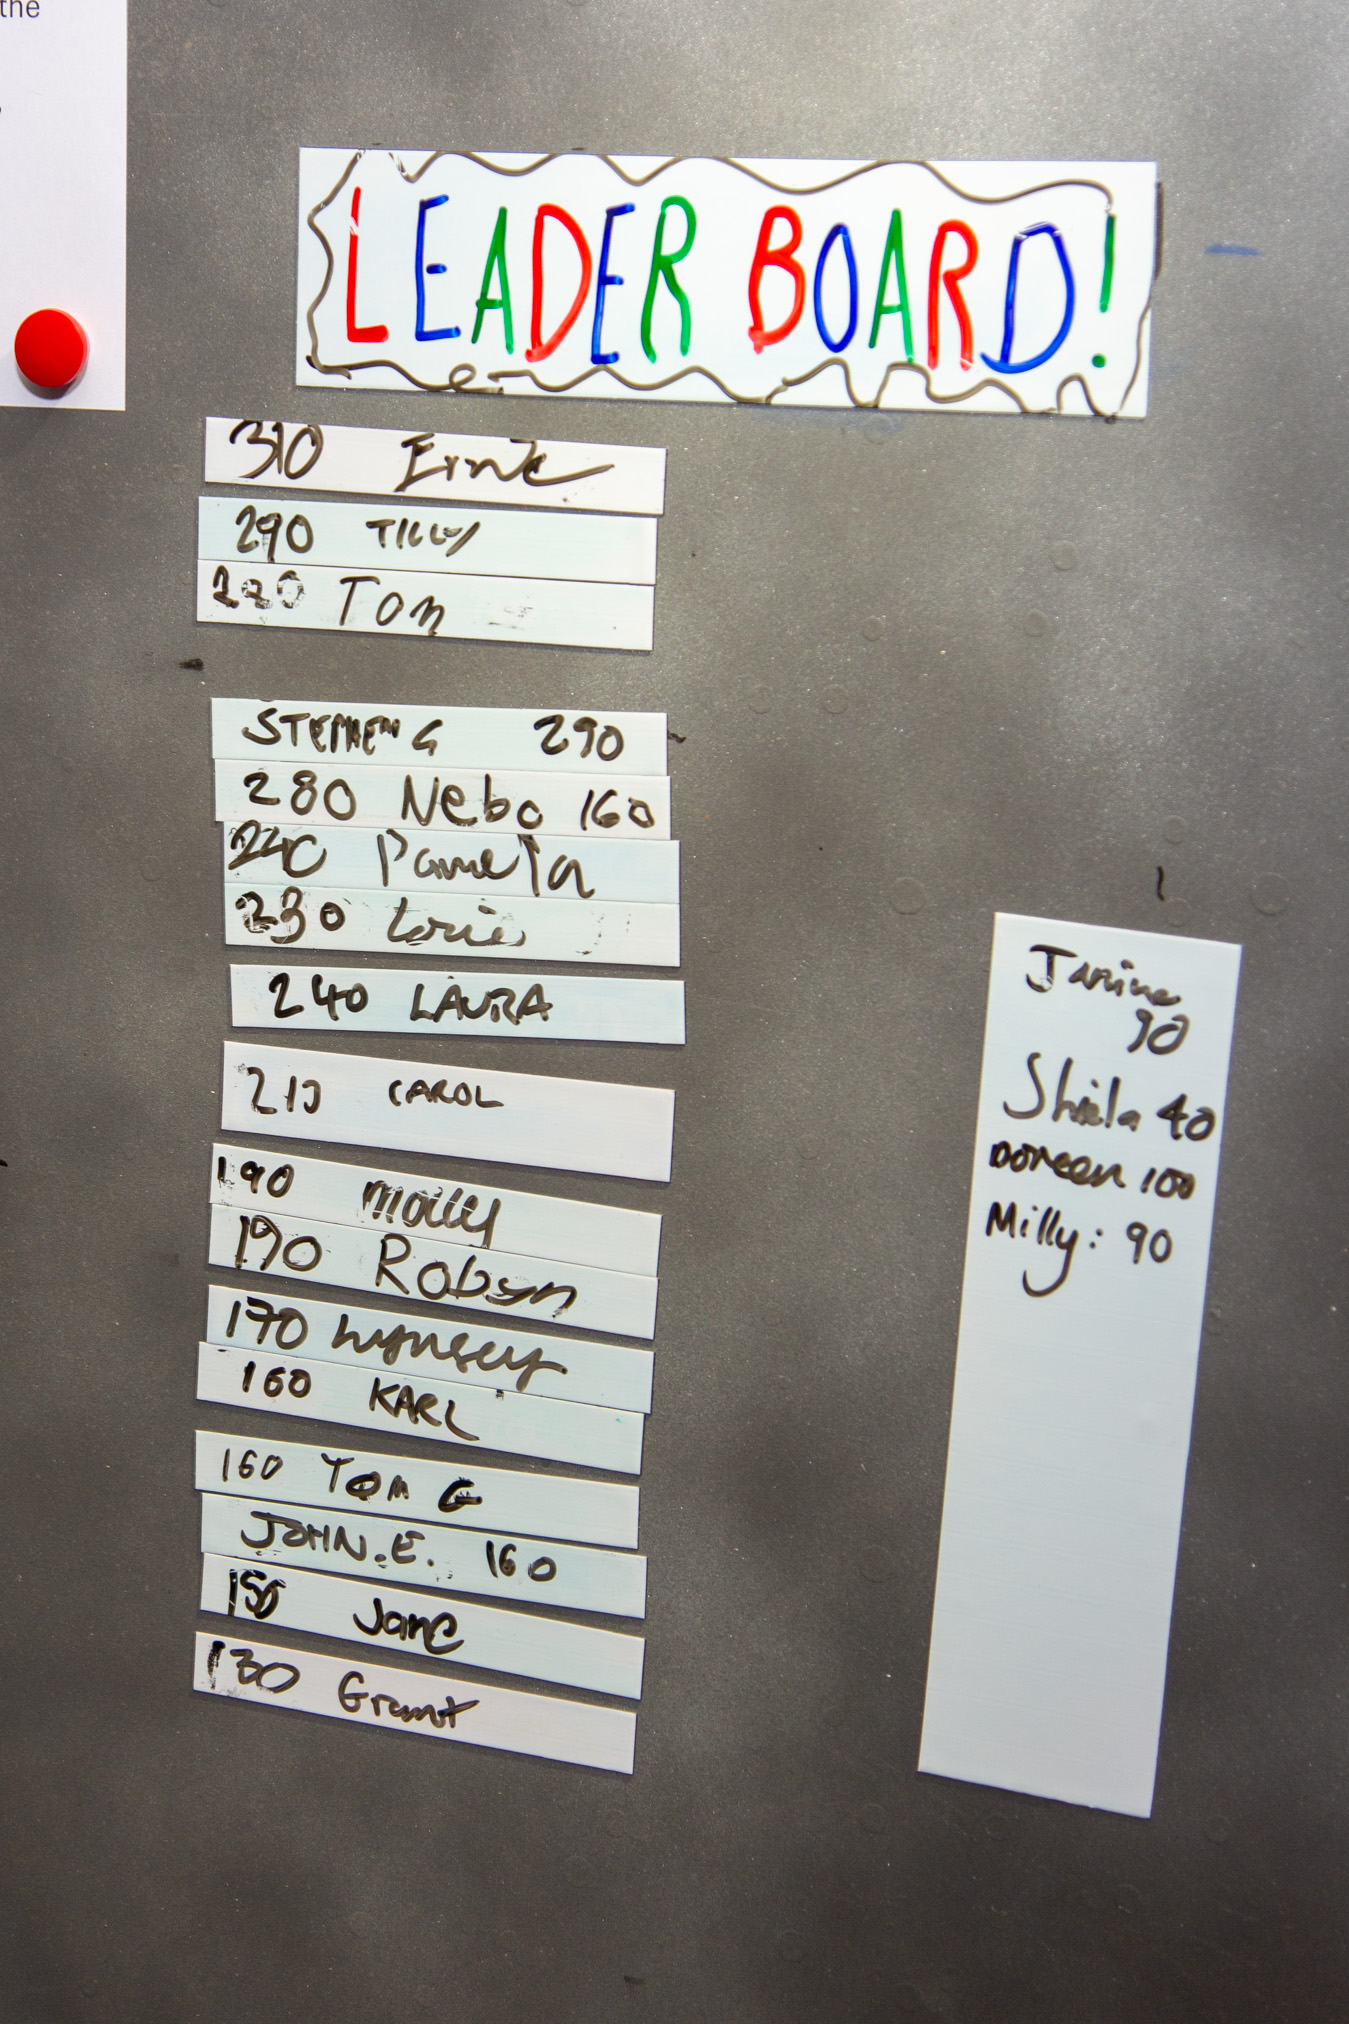 the
LEADER BOARD!
310 Ernie
290 TILLY
220 Tom
STEPHEN G 290
280 Nebo 160
240 Pamela
230
240 LAURA
210 CAROL
190 Molly
190 Robyn
170 Lynsey
160 KARL
160 TOM G
JOHN.E. 160
150 Jane
130 Grant
Janine
90
Shiela 40
Doreen 100
Milly: 90